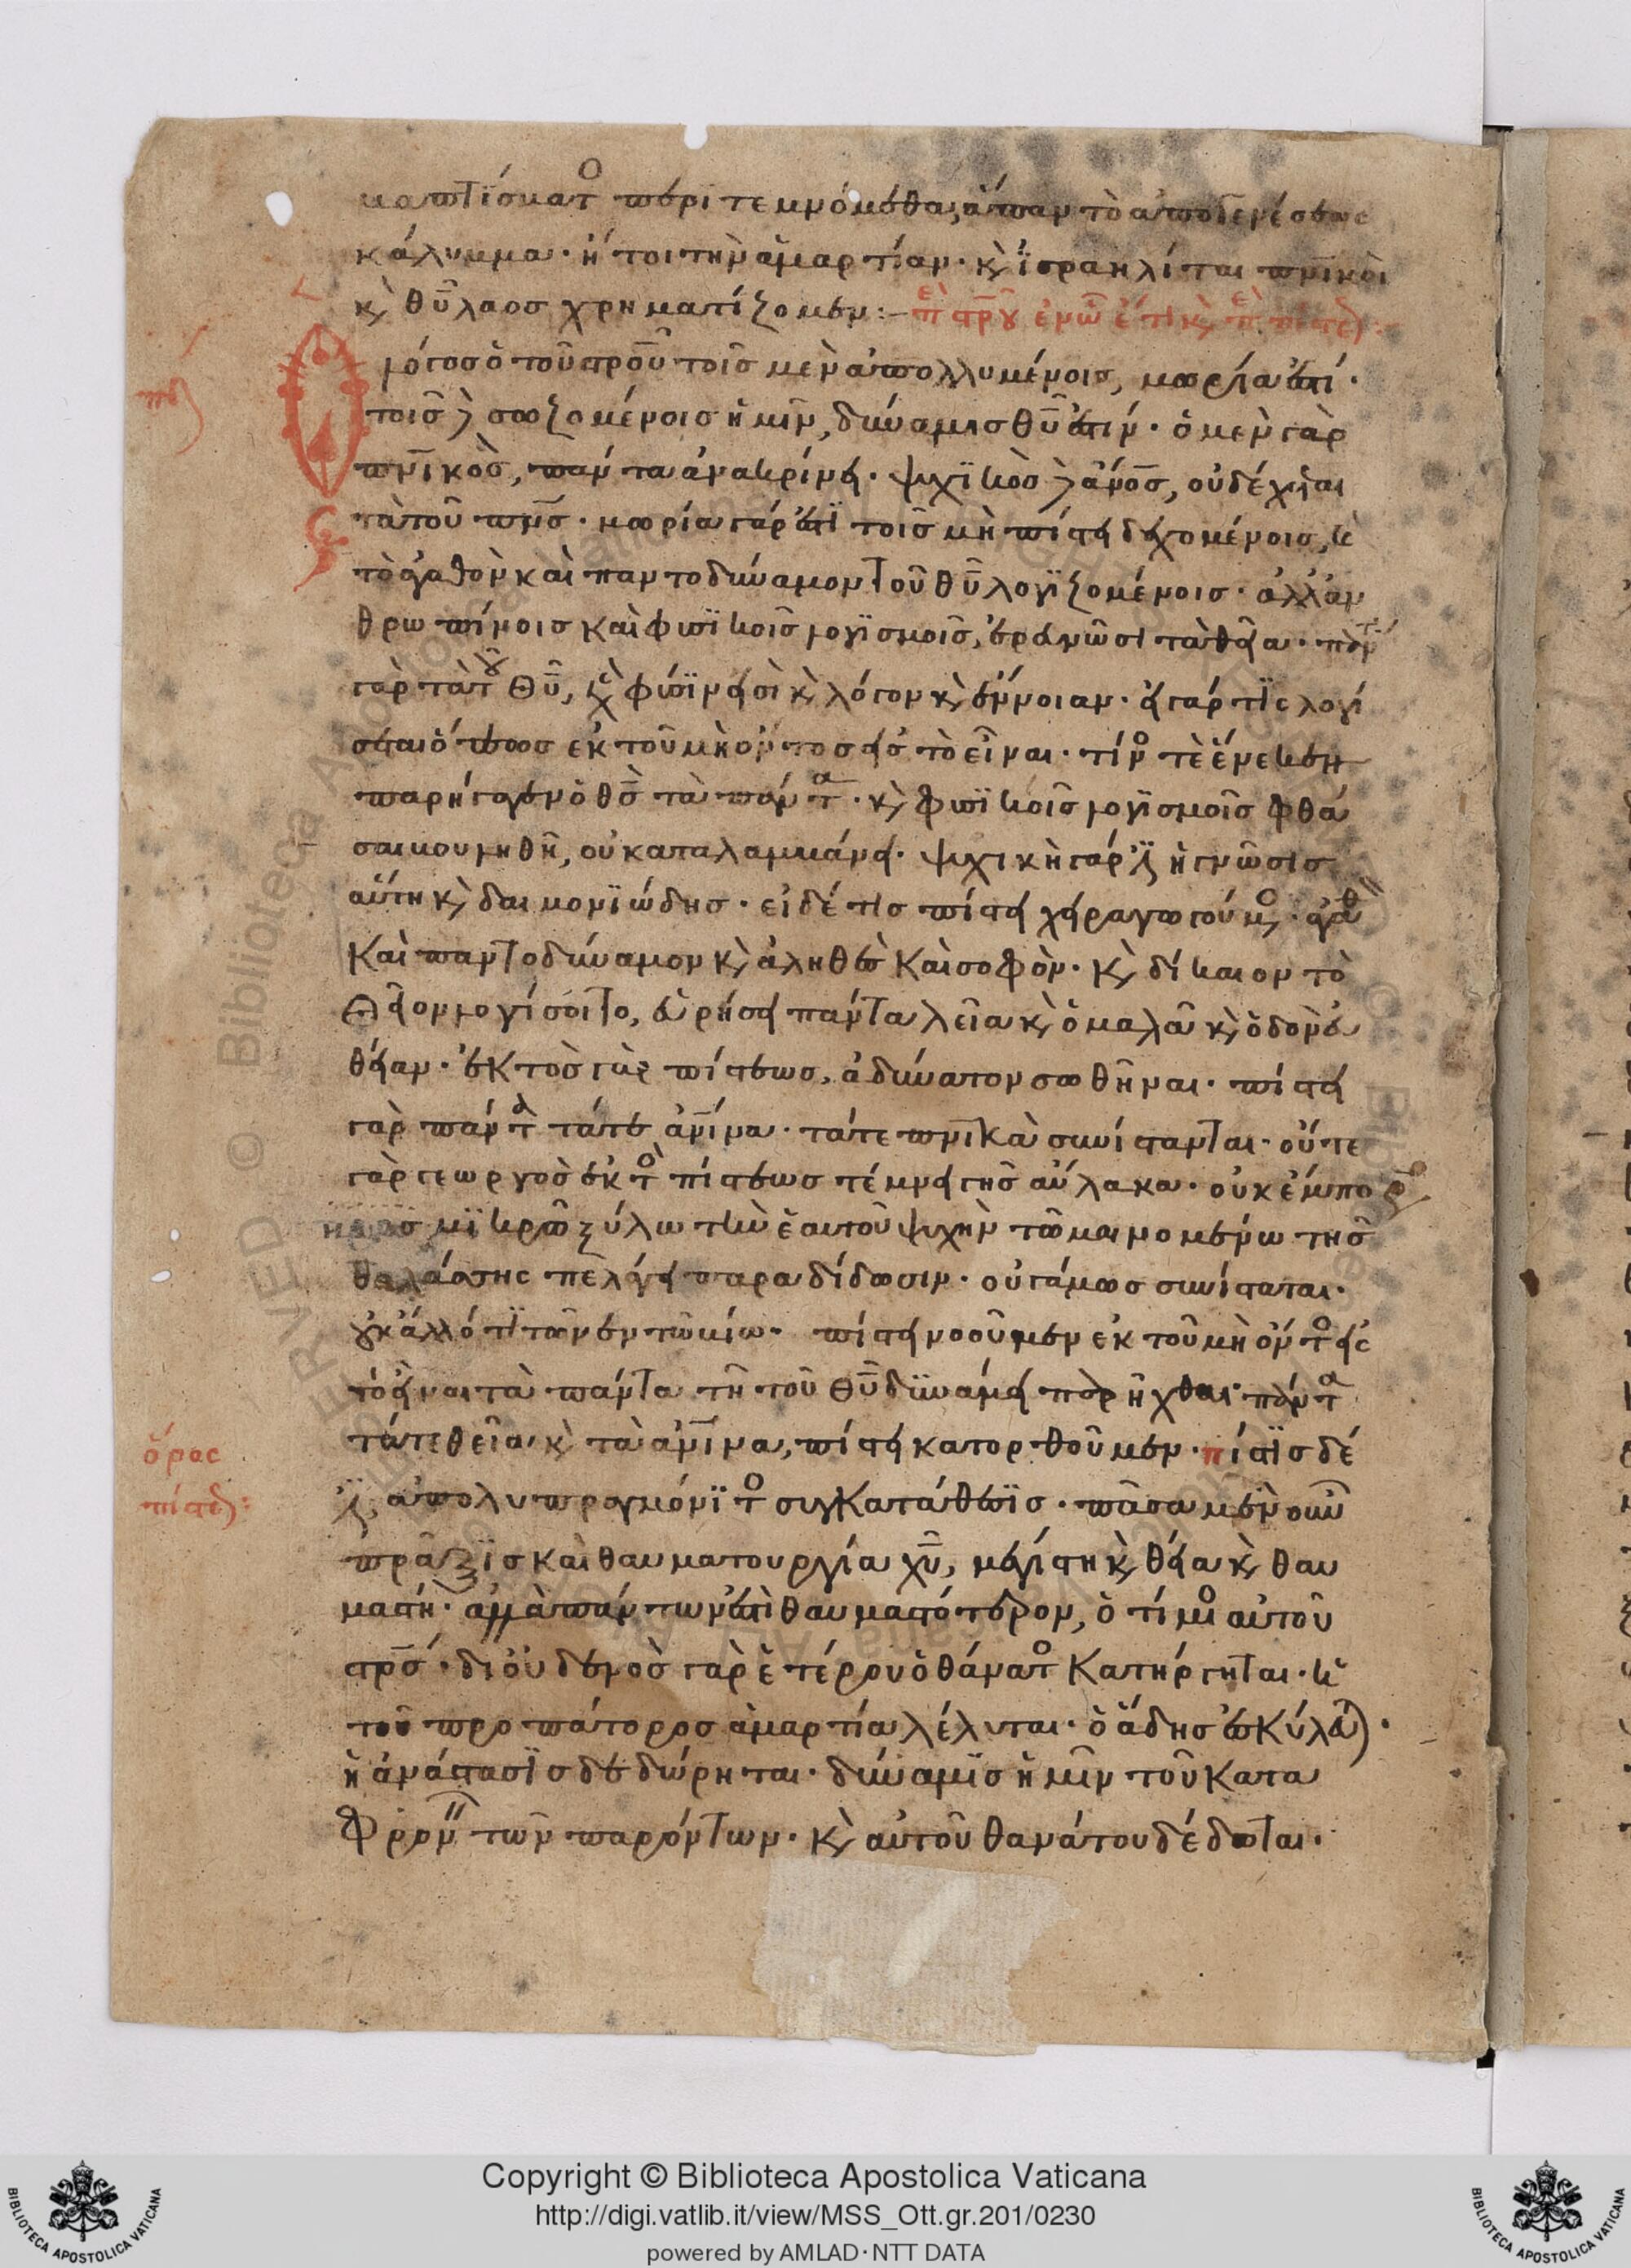 βαπτίσματος περιτεμνόμεθα, ἅπαν τὸ ἀπὸ γενέσεως
κάλυμμα· ἤτοι τὴν ἁμαρτίαν· κ(αὶ) ἰσραηλῖται πν(ευματ)ικοὶ
κ(αὶ) θ(εο)ῦ λαὸς χρηματίζομεν:– περὶ στ(αυ)ροῦ ἐν ᾧ ἔτι κ(αὶ) περὶ πίστεως:
Ὁ λόγος ὁ τοῦ στ(αυ)ροῦ τοῖς μὲν ἀπολλυμένοις, μωρία ἐστί·
τοῖς δὲ σωζομένοις ἡμῖν, δύναμις θ(εο)ῦ ἐστίν· ὁ μὲν γὰρ
πν(ευματ)ικὸς, πάντα ἀνακρίνει· ψυχικὸς δὲ ἄν(θρωπ)ος, οὐ δέχεται
τὰ τοῦ πν(εύματο)ς· μωρία γάρ ἐστι τοῖς μὴ πίστει δεχομένοις, κ(αὶ)
τὸ ἀγαθὸν καὶ παντοδύναμον τοῦ θ(εο)ῦ λογιζομένοις· ἀλλ' ἀν
θρωπίνοις καὶ φυσικοῖς λογισμοῖς, ἐρευνῶσι τὰ θεῖα· πάντα
γὰρ τὰ τοῦ θ(εο)ῦ, ὑπὲρ φύσιν εἰσὶ κ(αὶ) λόγον κ(αὶ) ἔννοιαν· εἰ γάρ τις λογί
σεται ὅπως ἐκ τοῦ μὴ ὄντος εἰς τὸ εἶναι· τίνος τὲ ἕνεκεν
παρήγαγεν ὁ θ(εὸ)ς τὰ πάντα· κ(αὶ) φυσικοῖς λογισμοῖς φθά
σαι βουληθῇ, οὐ καταλαμβάνει· ψυχικὴ γάρ ἐστιν ἡ γνῶσις
αὕτη κ(αὶ) δαιμονιώδης· εἰ δέ τις πίστει χειραγωγούμενος· ἀγαθὸν
καὶ παντοδύναμον κ(αὶ) ἀληθὲς καὶ σοφὸν· κ(αὶ) δίκαιον τὸ
θεῖον λογίσοιτο, εὑρήσει πάντα λεῖα κ(αὶ) ὁμαλὰ κ(αὶ) ὁδὸν εὐ
θεῖαν· ἐκτὸς γὰρ πίστεως, ἀδύνατον σωθῆναι· πίστει
γὰρ πάντα τά τε ἀν(θρώπ)ινα· τά τε πν(ευματ)ικὰ συνίστανται· οὔτε
γὰρ γεωργὸς ἐκτὸς πίστεως τέμνει γῆς αὔλακα· οὐκ ἔμπορος
μικρῷ ξύλω τὴν ἑαυτοῦ ψυχὴν τῷ μαινομένω τῆς
θαλάσσης πελάγει παραδίδωσιν· οὐ γάμος συνίσταται·
οὐκ ἄλλό τι τῶν ἐν τῷ βίω· πίστει νοοῦμεν ἐκ τοῦ μὴ ὄντος εἰς
τὸ εἶναι τὰ πάντα τῇ τοῦ θ(εο)ῦ δυνάμει παρῆχθαι· πάντα
τά τε θεῖα κ(αὶ) τὰ ἀν(θρώπ)ινα, πίστει κατορθοῦμεν· πίστις δέ
ὅρος
πίστεως:
ἐστιν ἀπολυπραγμόνητος συγκατάθεσις· πᾶσα μὲν οὖν
πρᾶξις καὶ θαυματουργία χ(ριστο)ῦ, μεγίστη κ(αὶ) θεία κ(αὶ) θαυ
μαστὴ· ἀλλὰ πάντων ἐστὶ θαυμαστότερον, ὁ τίμιος αὐτοῦ
στ(αυ)ρός· δι' οὐδενὸς γὰρ ἑτέρου ὁ θάνατος κατήργηται· ἡ
τοῦ προπάτορος ἁμαρτία λέλυται· ὁ ᾅδης ἐσκύλευται·
ἡ ἀνάστασις δεδώρηται· δύναμις ἡμῖν τοῦ κατα
φρονεῖν τῶν παρόντων· κ(αὶ) αὐτοῦ θανάτου δέδοται·
Copyright © Biblioteca Apostolica Vaticana
http://digi.vatlib.it/view/MSS_Ott.gr.201/0230
powered by AMLAD·NTT DATA
BIBLIOTECA APOSTOLICA VATICANA
BIBLIOTECA APOSTOLICA VATICANA